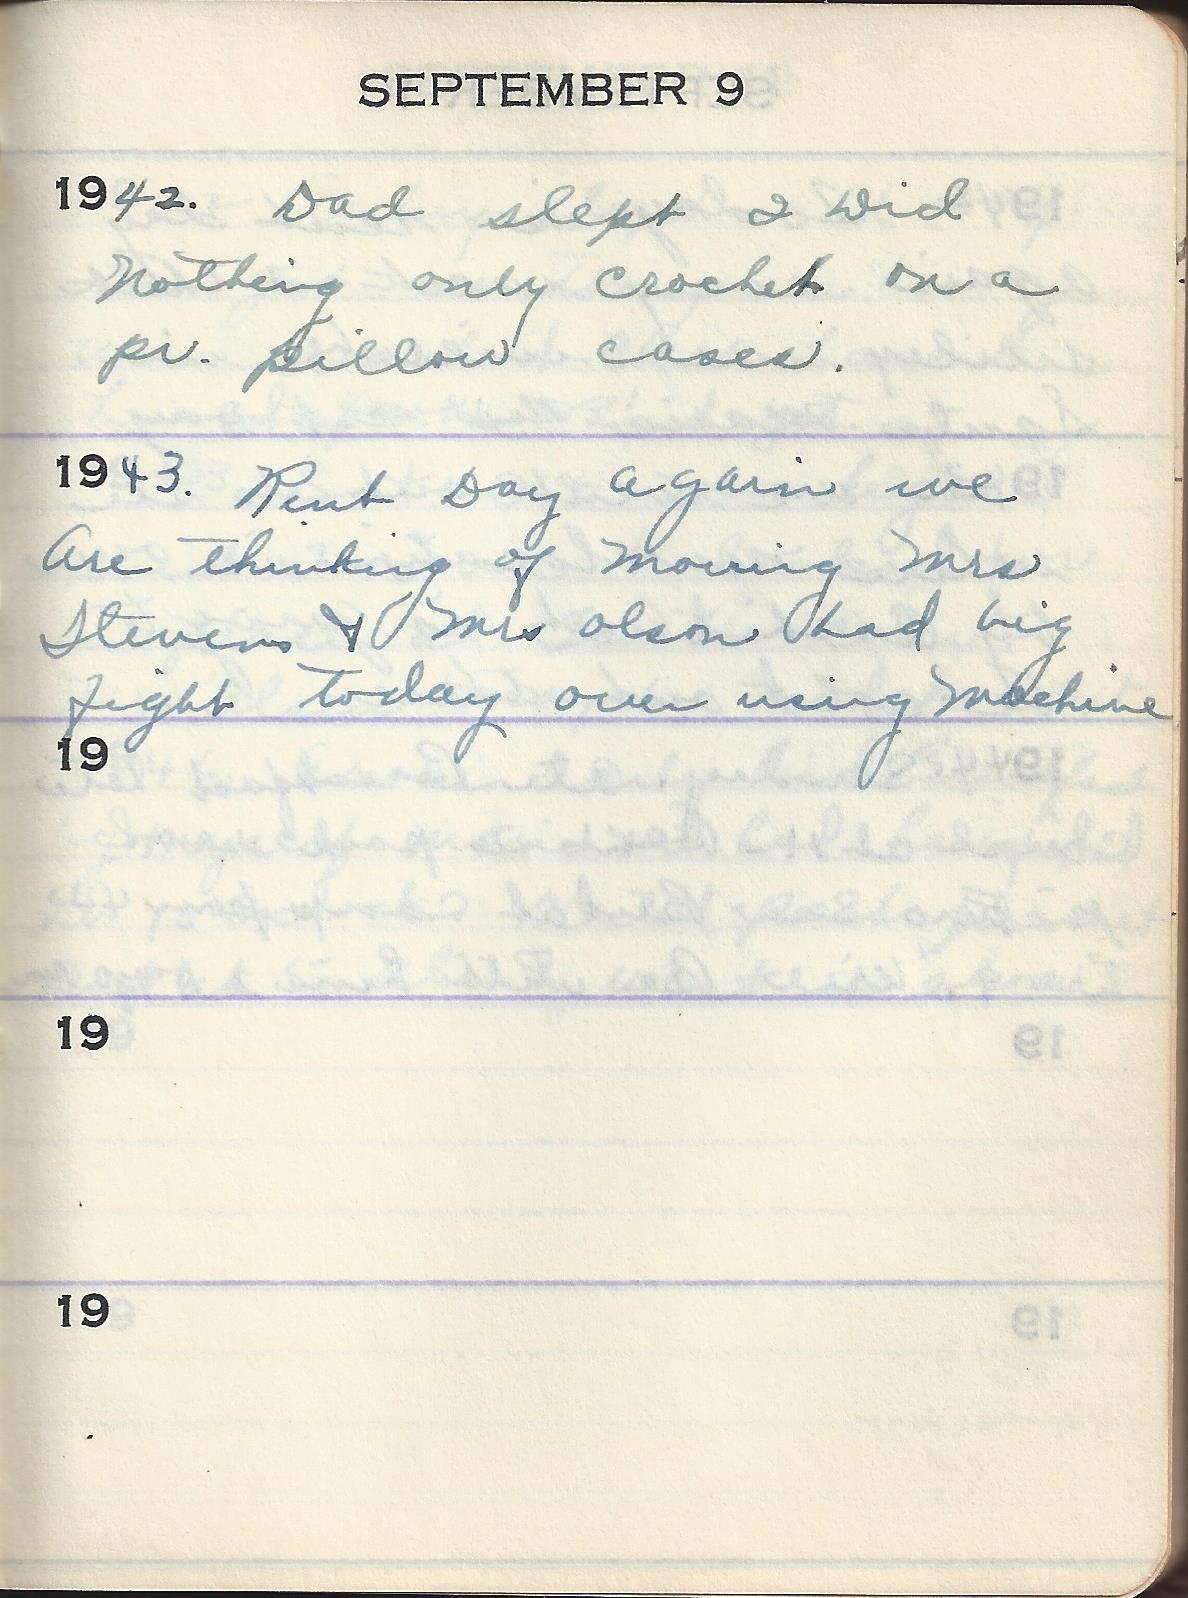 SEPTEMBER 9
1942. Dad slept I Did
Nothing only crochet on a
pr. pillow cases.
1943. Rent Day again we
Are thinking of moving Mrs
Stevens & Mrs olson had big
fight today over using machine
19
19
19